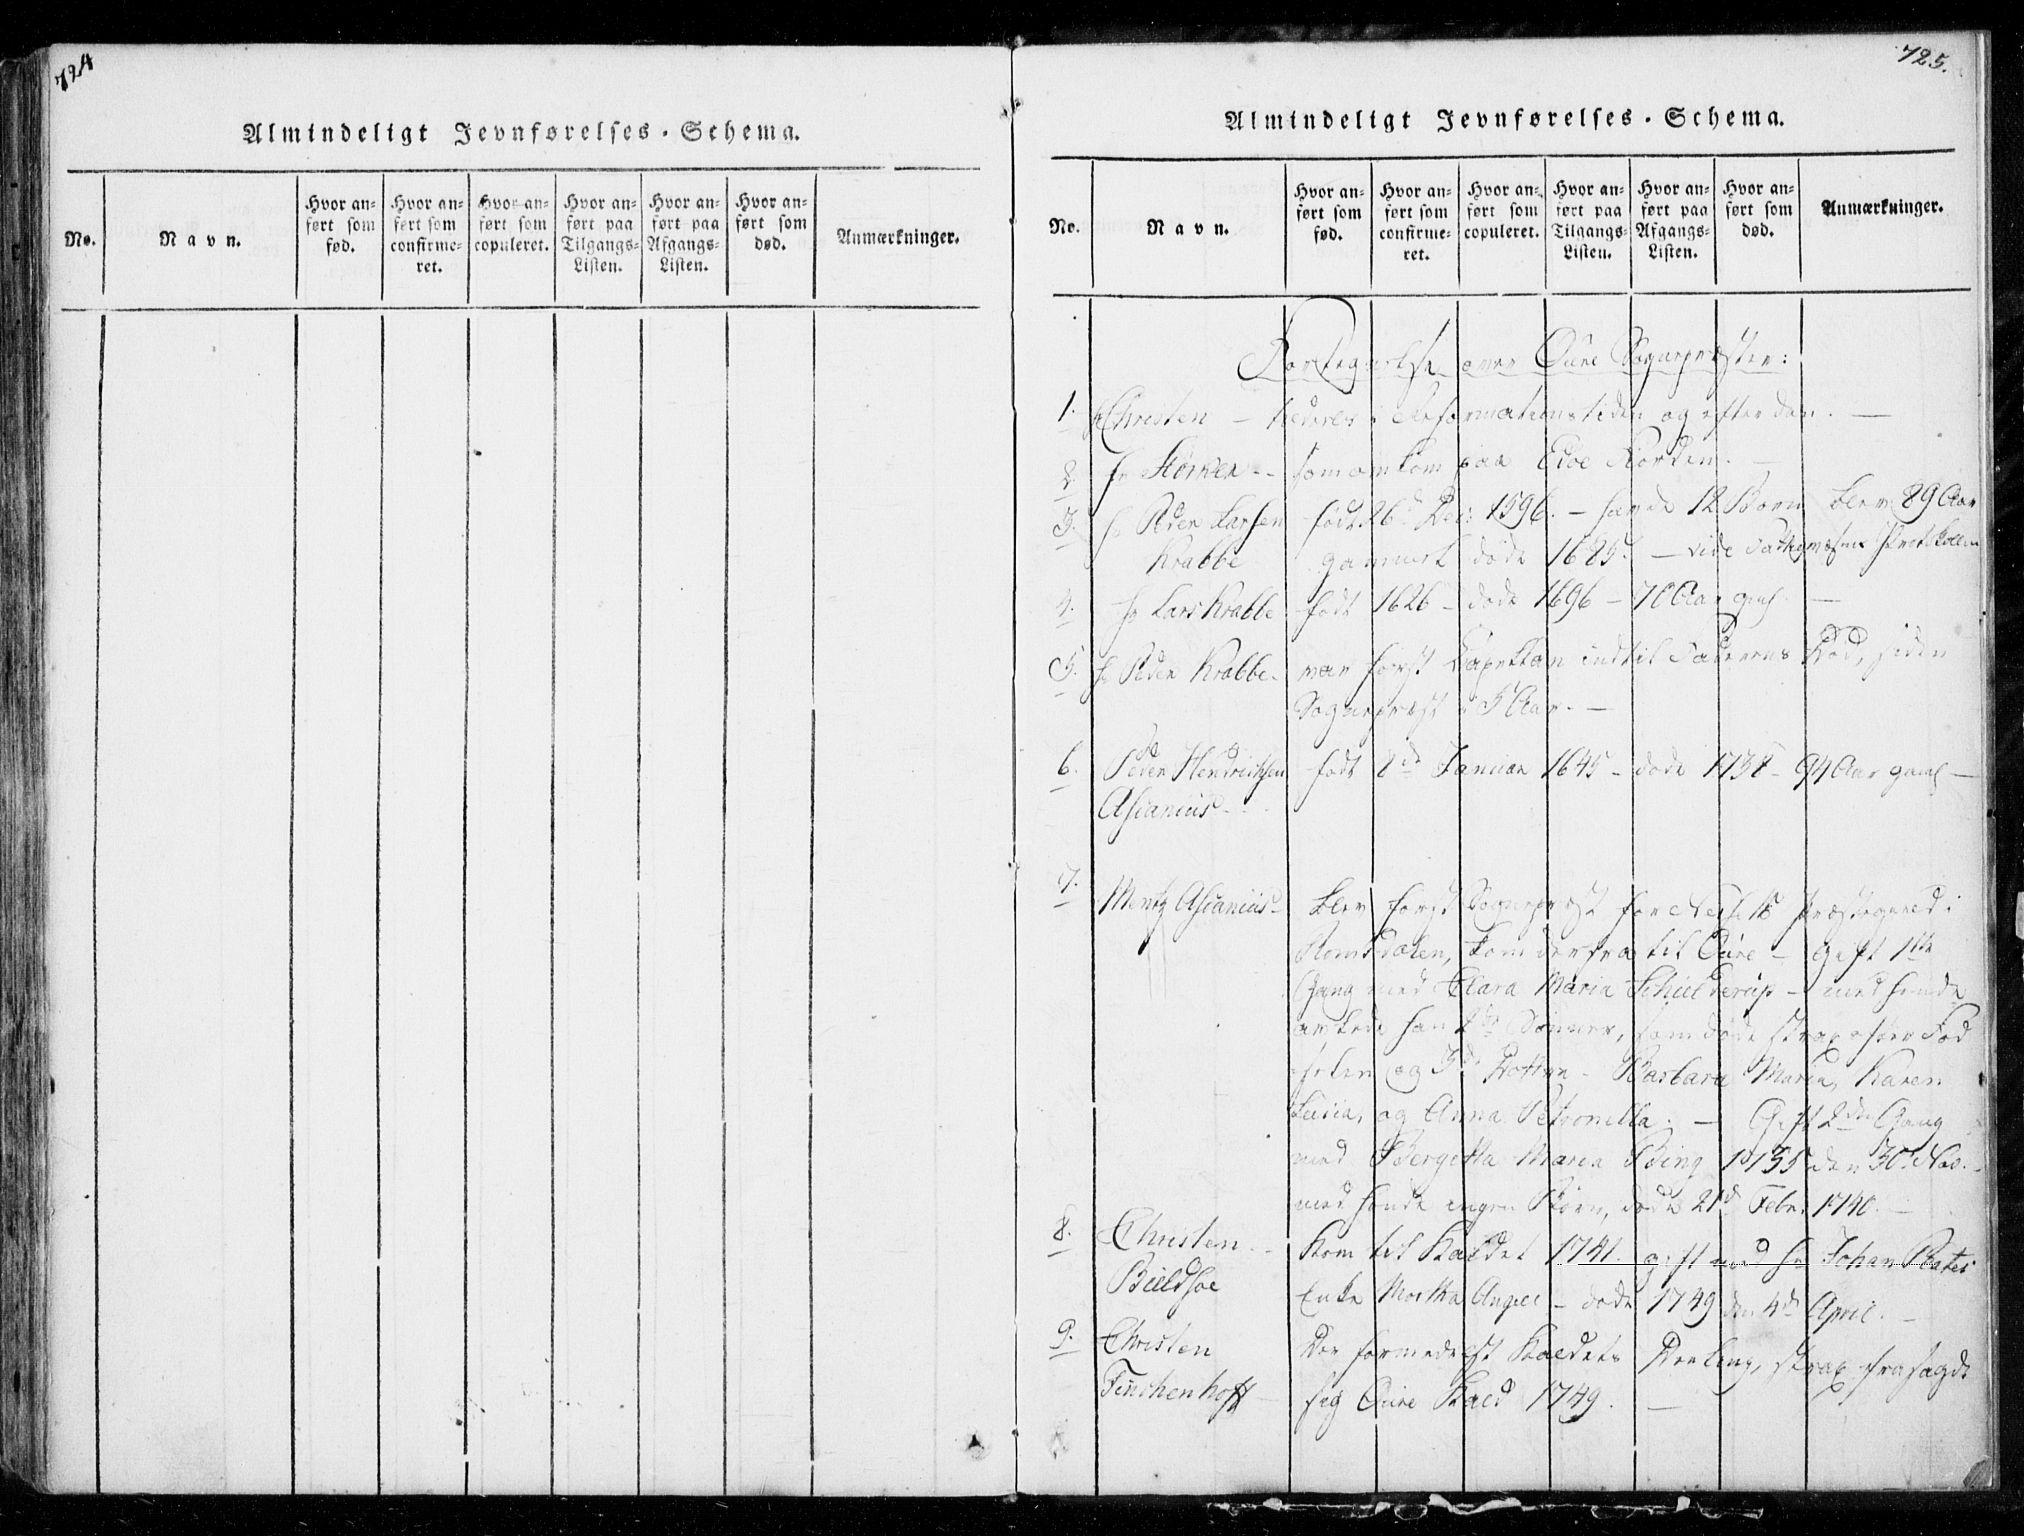 724
Almindeligt Jevnførelses-Schema.
No.
Navn.
Hvor anført som fød.
Hvor anført som confirmeret.
Hvor anført som copuleret.
Hvor anført paa Tilgangs-Listen.
Hvor anført paa Afgangs-Listen.
Hvor anført som død.
Anmærkninger.
725.
Almindeligt Jevnførelses-Schema.
No.
Navn.
Hvor anført som fød.
Hvor anført som confirmeret.
Hvor anført som copuleret.
Hvor anført paa Tilgangs-Listen.
Hvor anført paa Afgangs-Listen.
Hvor anført som død.
Anmærkninger.
Fortegnelse over Øure Sognepræster:
1. Hr Christen - i Reformations tiden og efter den. -
2. Hr - som omkom paa Edøe Fiorden. -
3. Hr Peder Larsen født 26d Dec: 1596. - havde 12 Børn blev 89 Aar
Krabbe gammel døde 1685. - vide Protokollen
4. Hr Lars Krabbe født 1626 - døde 1696 - 70 Aar gml. -
5. Hr Peder Krabbe - var først Capellan indtil Faderens Død, siden
Sognepræst i 5 Aar. -
6. Peder Hendrichsen født 8de Januar 1645 - døde 1738 - 94 Aar gaml -
Ascanius -
7. Mentz Ascanius - blev først Sognepræst for Nessets Præstegield i
Romsdalen, kom derfra til Øure - Gift 1ste
Gang med Clara Maria Schielderup - med hende
avlede han 2de Sønner, som døde strax efter Fød
selen og 3de Døttre - Barbara Maria, Karen
Lucia, og Anna Petronella. - Gift 2den Gang
med Bergitta Maria Bing 1735 den 30. Nov. -
med hende ingen Børn, døde 21d Febr. 1740. -
8. Christen - kom til Kaldet 1741. gift med Hr Johan
Bieldsøe Enke Martha Angell - døde 1749 den 4d April. -
9. Christen Der formedelst Kaldets Deeling, strax frasagde
Finchenhoff - sig Øure Kald 1749. -